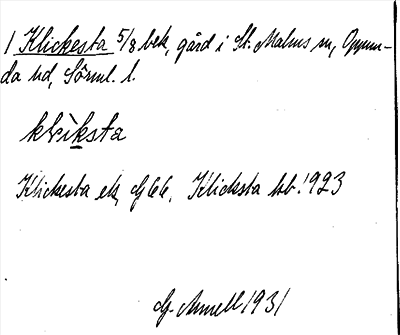 1 Klickesta 5/8 bek, gård i St. Malms sn, Oppun-
da hd, Sörml. l.
klìksta
Klickesta ek, G 66, Klicksta hb. 1923
G. Annell 1931